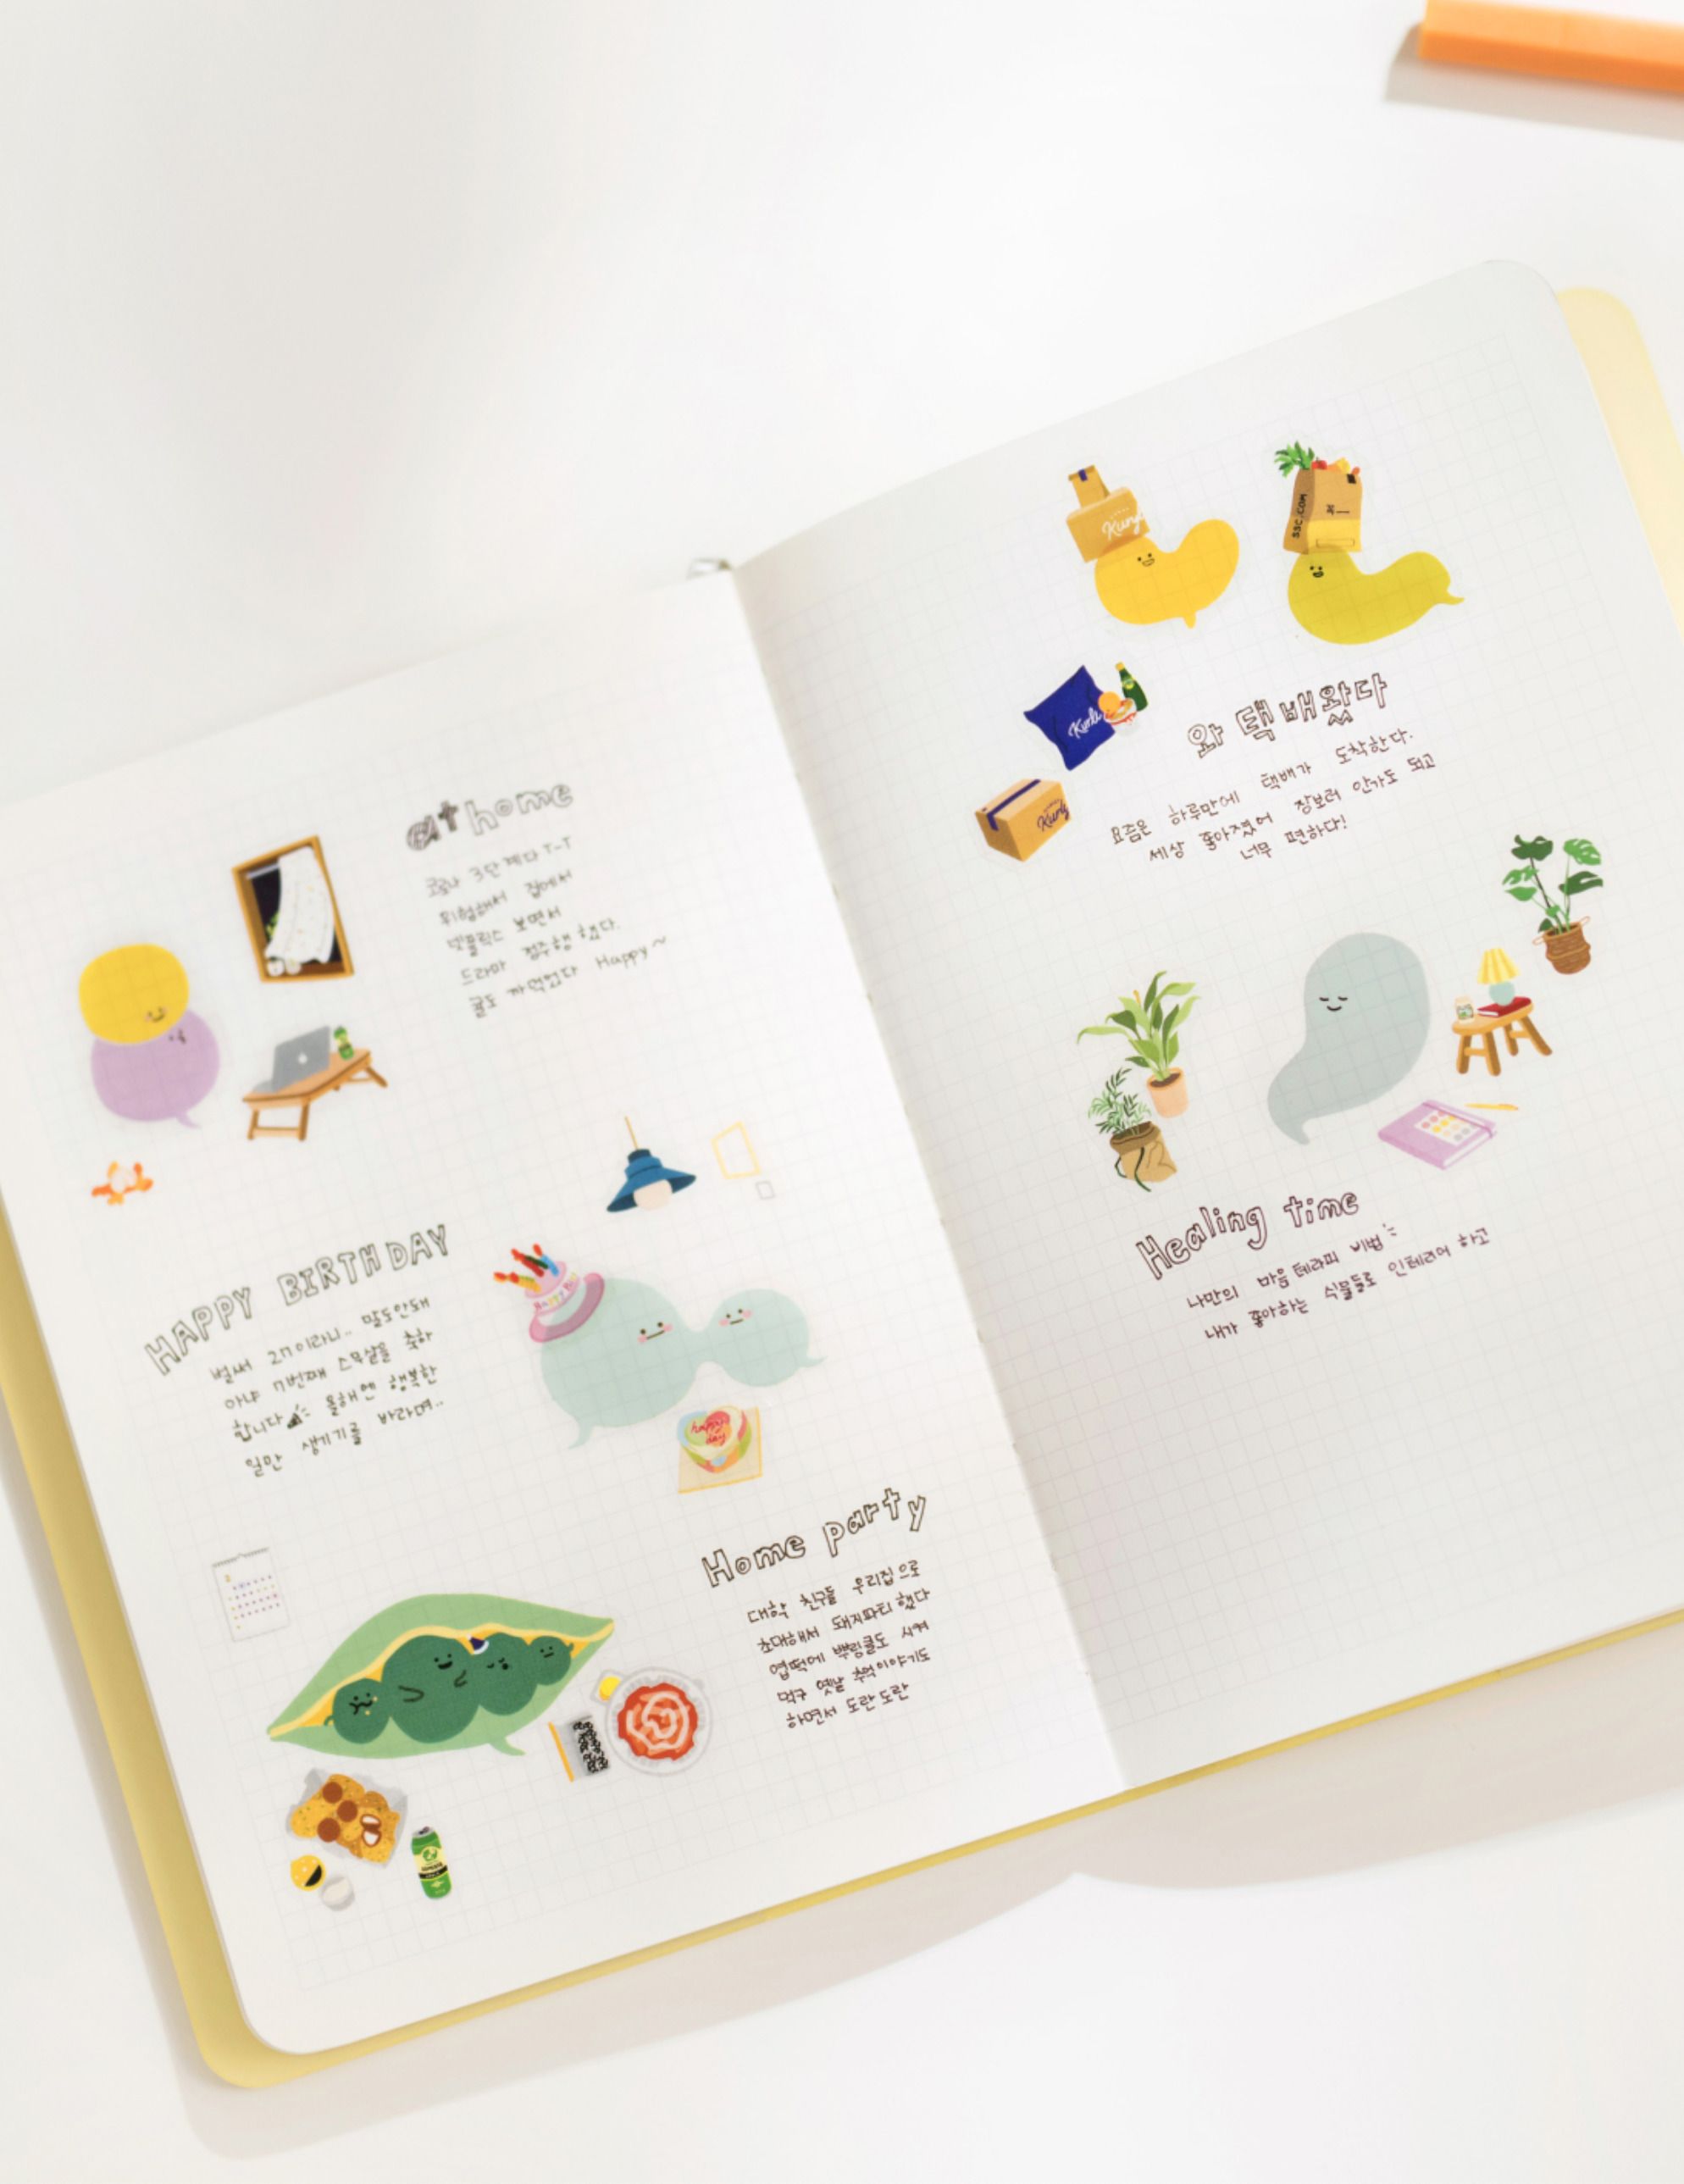 at home
코로나 3단계다 T-T
위험해서 집에서
넷플릭스 보면서
드라마 정주행 했다.
귤도 까먹었다 Happy~
HAPPY BIRTHDAY
벌써 27이라니.. 말도안돼
아냐 7번째 스무살을 축하
합니다 올해엔 행복한
일만 생기기를 바라며..
Happy
happy
day
Home party
대학 친구들 우리집으로
초대해서 돼지파티 했다
엽떡에 뿌링클도 시켜
먹구 옛날 추억이야기도
하면서 도란도란
Kurly
SSG.COM
Kurly
Kurly
와 택배왔다
요즘은 하루만에 택배가 도착한다.
세상 좋아졌어 장보러 안가도 되고
너무 편하다!
Healing time
나만의 마음 테라피 비법
내가 좋아하는 식물들로 인테리어 하고